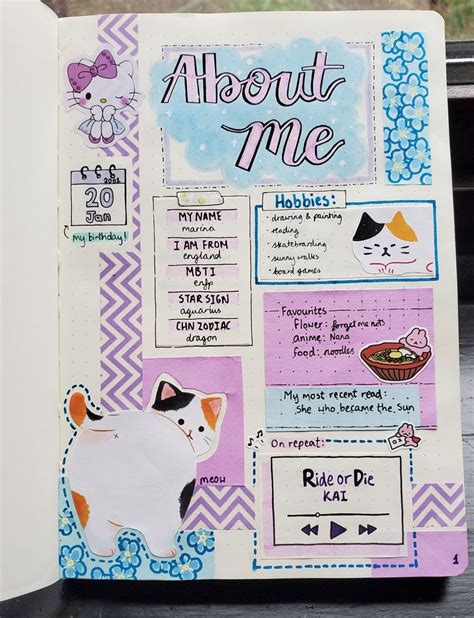 About
me
2001
20
Jan
my birthday!
MY NAME
marina
I AM FROM
england
MBTI
enfp
STAR SIGN
aquarius
CHN ZODIAC
dragon
Hobbies:
drawing & painting
reading
skateboarding
sunny walks
board games
Favourites
flower: forget me nots
anime: Nana
food: noodles
My most recent read:
She who became the Sun
On repeat:
Ride or Die
KAI
meow
1